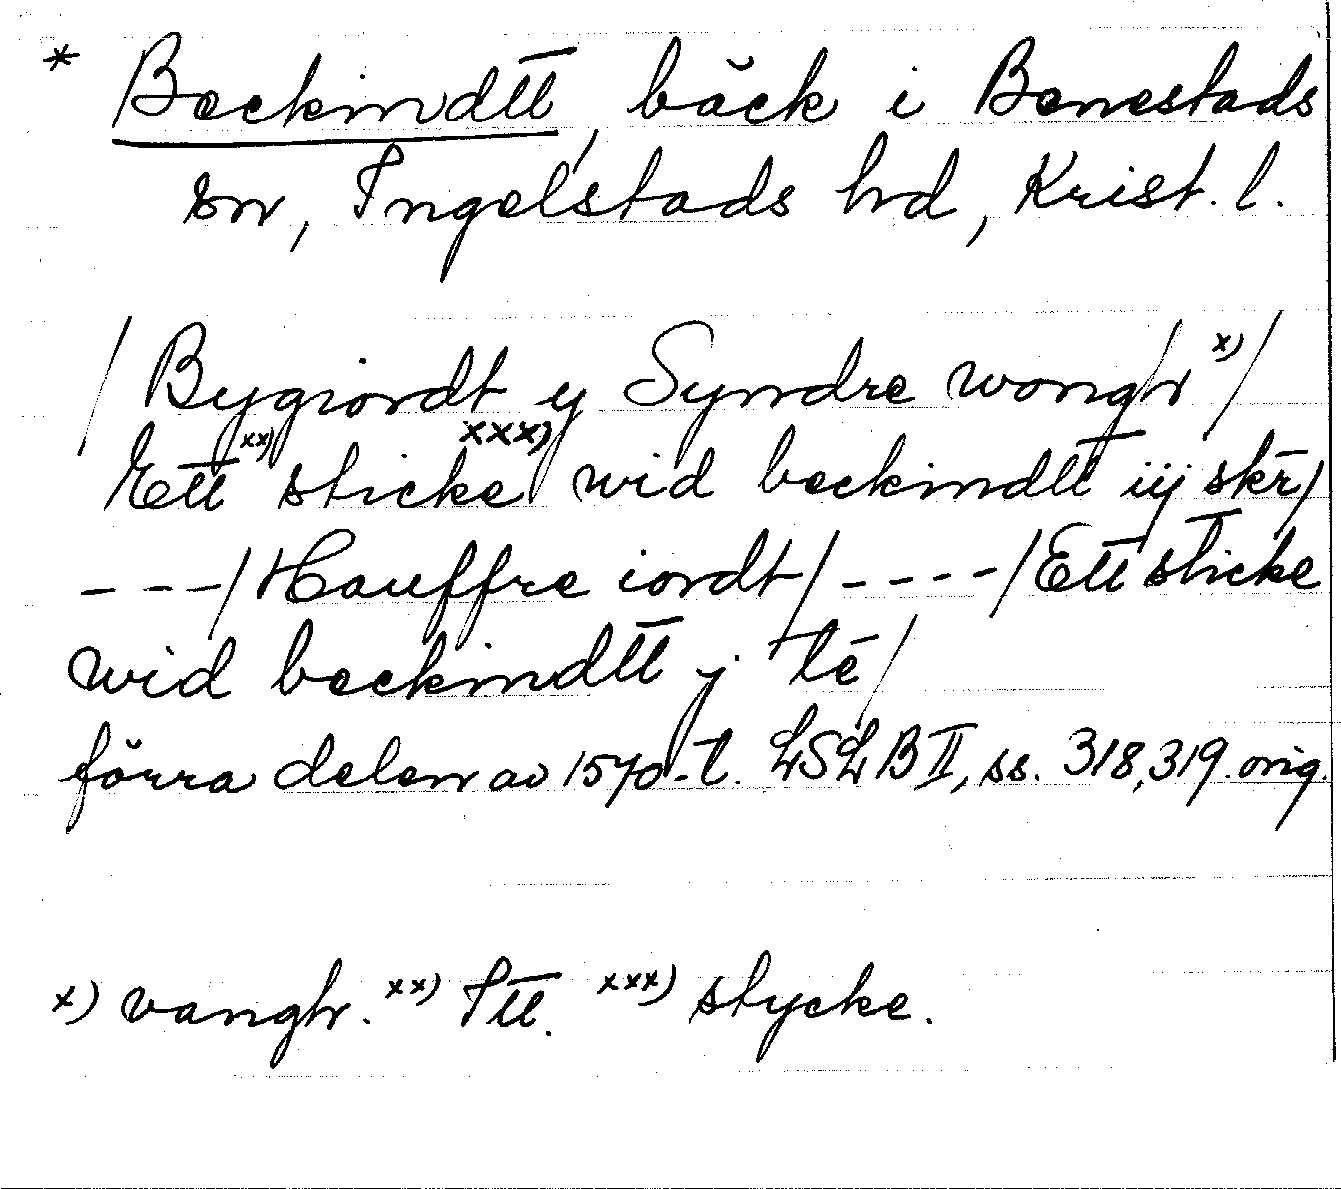 * Beckindtt, bäck i Benestads
sn, Ingelstads hd, Krist. l.
/ Bygiordt y Syndre wongh x) /
Ett xx) sticke xxx) wid beckindtt iij skr̄ /
- - - / Hauffre iordt / - - - - / Ett sticke
wid beckindtt j tē /
förra delen av 1570-t. LSLB II, ss. 318, 319. orig.
x) vangh. xx) Itt. xxx) stycke.